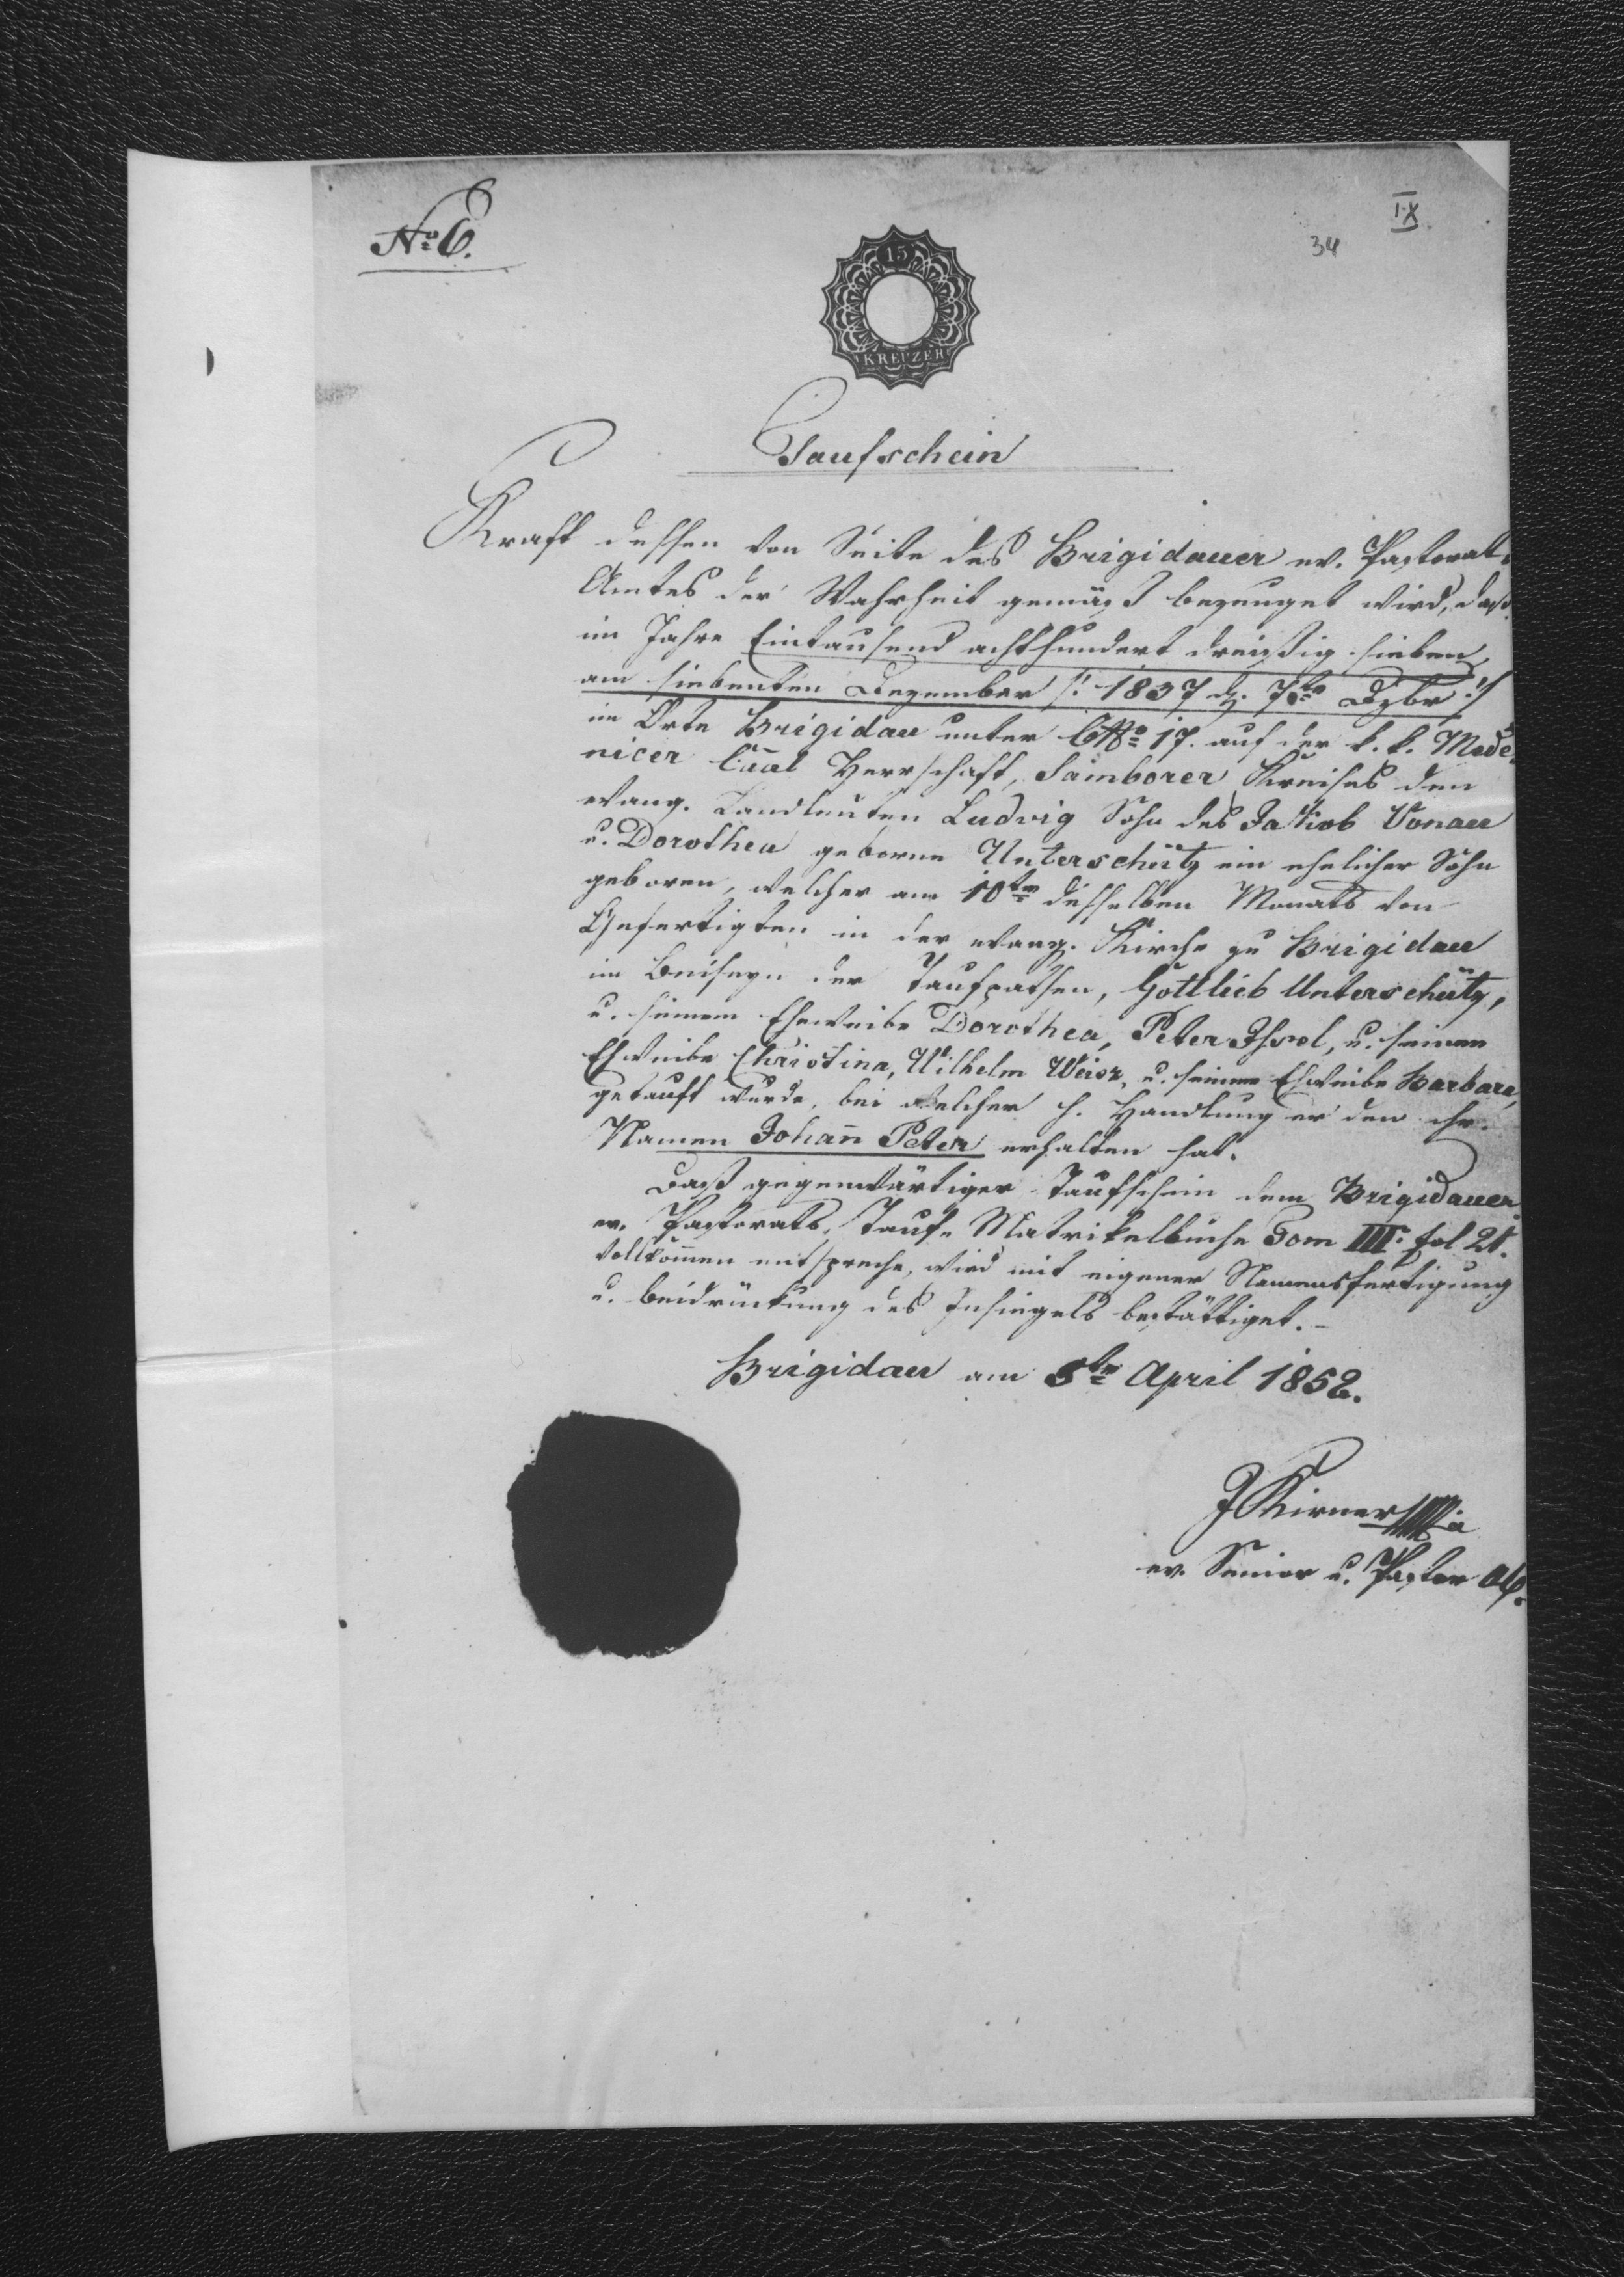 No. 6.
IX.
34
15
KREUZER
Taufschein
Kraft dessen von Seite des Brigidauer ev. Pastorat-
Amtes der Wahrheit gemäß bezeuget wird, daß
im Jahre Eintausend achthundert dreißig-sieben
am siebenten Dezember /: 1837 d. 7ten Dzbr :/
im Orte Brigidau unter CNo 17. auf der k. k. Mede-
nicer Caal Herrschaft, Samborer Kreises den
evang. Landleuten Ludvig Sohn des Jakob Vonau
u. Dorothea geborne Unterschütz ein ehelicher Sohn
geboren, welcher am 10ten desselben Monats von
Gefertigten in der evang. Kirche zu Brigidau
im Beiseyn der Taufpathen, Gottlieb Unterschütz,
u. seinem Eheweibe Dorothea, Peter u. seinem
Eheweibe Christina, Wilhelm Weisz, u. seinem Eheweibe Barbara,
getauft wurde, bei welcher h. Handlung er den chr.
Namen Johann Peter erhalten hat.
Daß gegenwärtiger Taufschein dem Brigidauer
ev. Pastorats, Tauf-Matrikelbuche Tom III. fol 21.
vollkommen entspreche, wird mit eigener Namensfertigung
u. Beidrückung des Insiegels bestättiget.-
Brigidau am 5ten April 1852.
J Kirner
ev. Senior u. Pastor